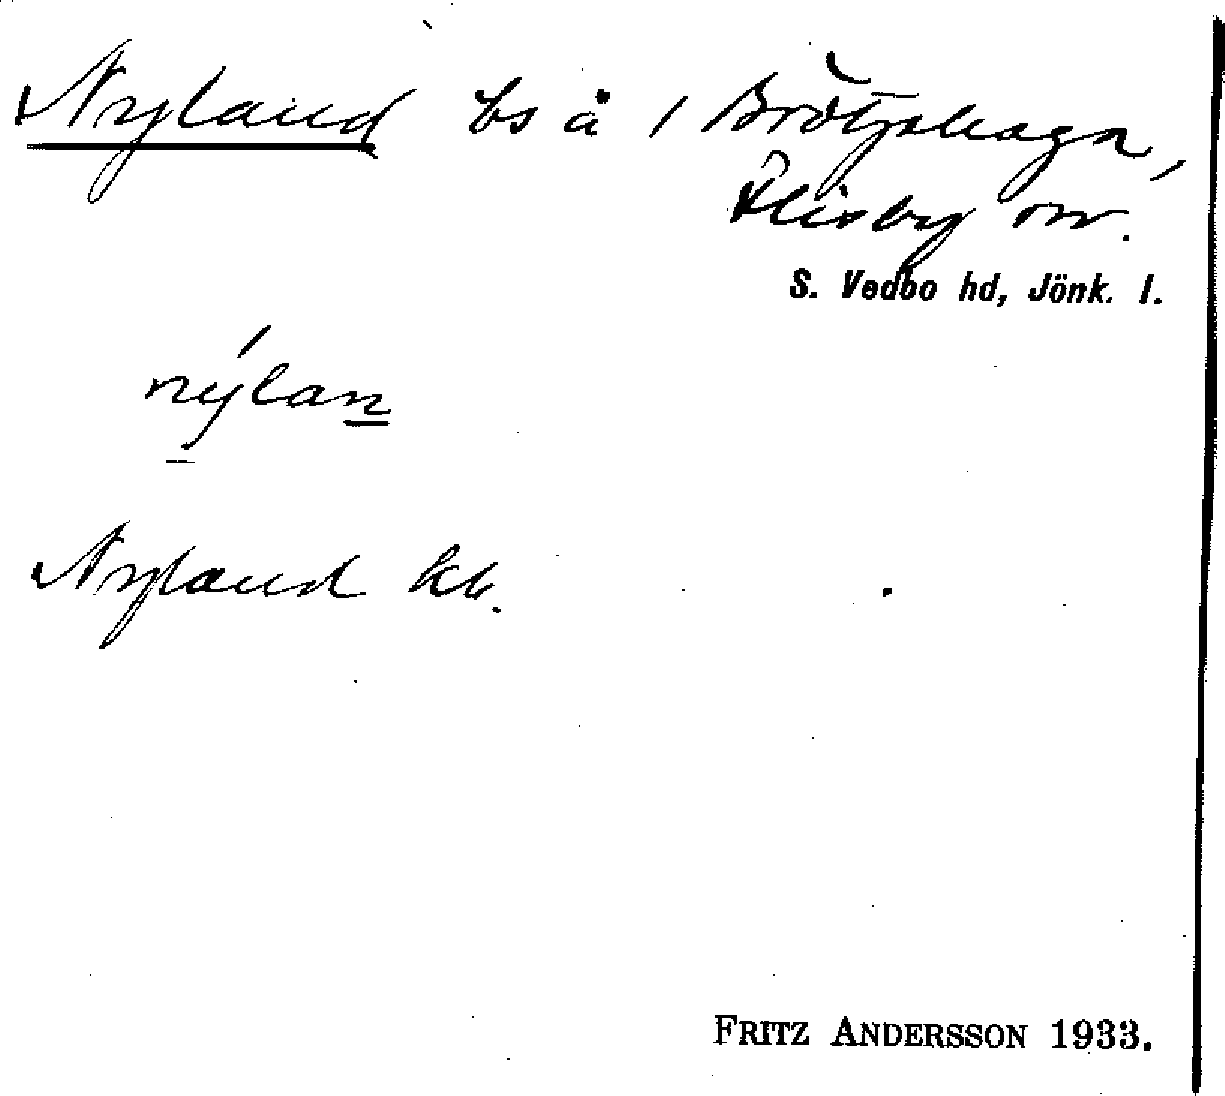 Nyland bs å 1 Brötjehaga,
Flisby sn.
S. Vedbo hd, Jönk. l.
nýlan
Nyland kb.
FRITZ ANDERSSON 1933.